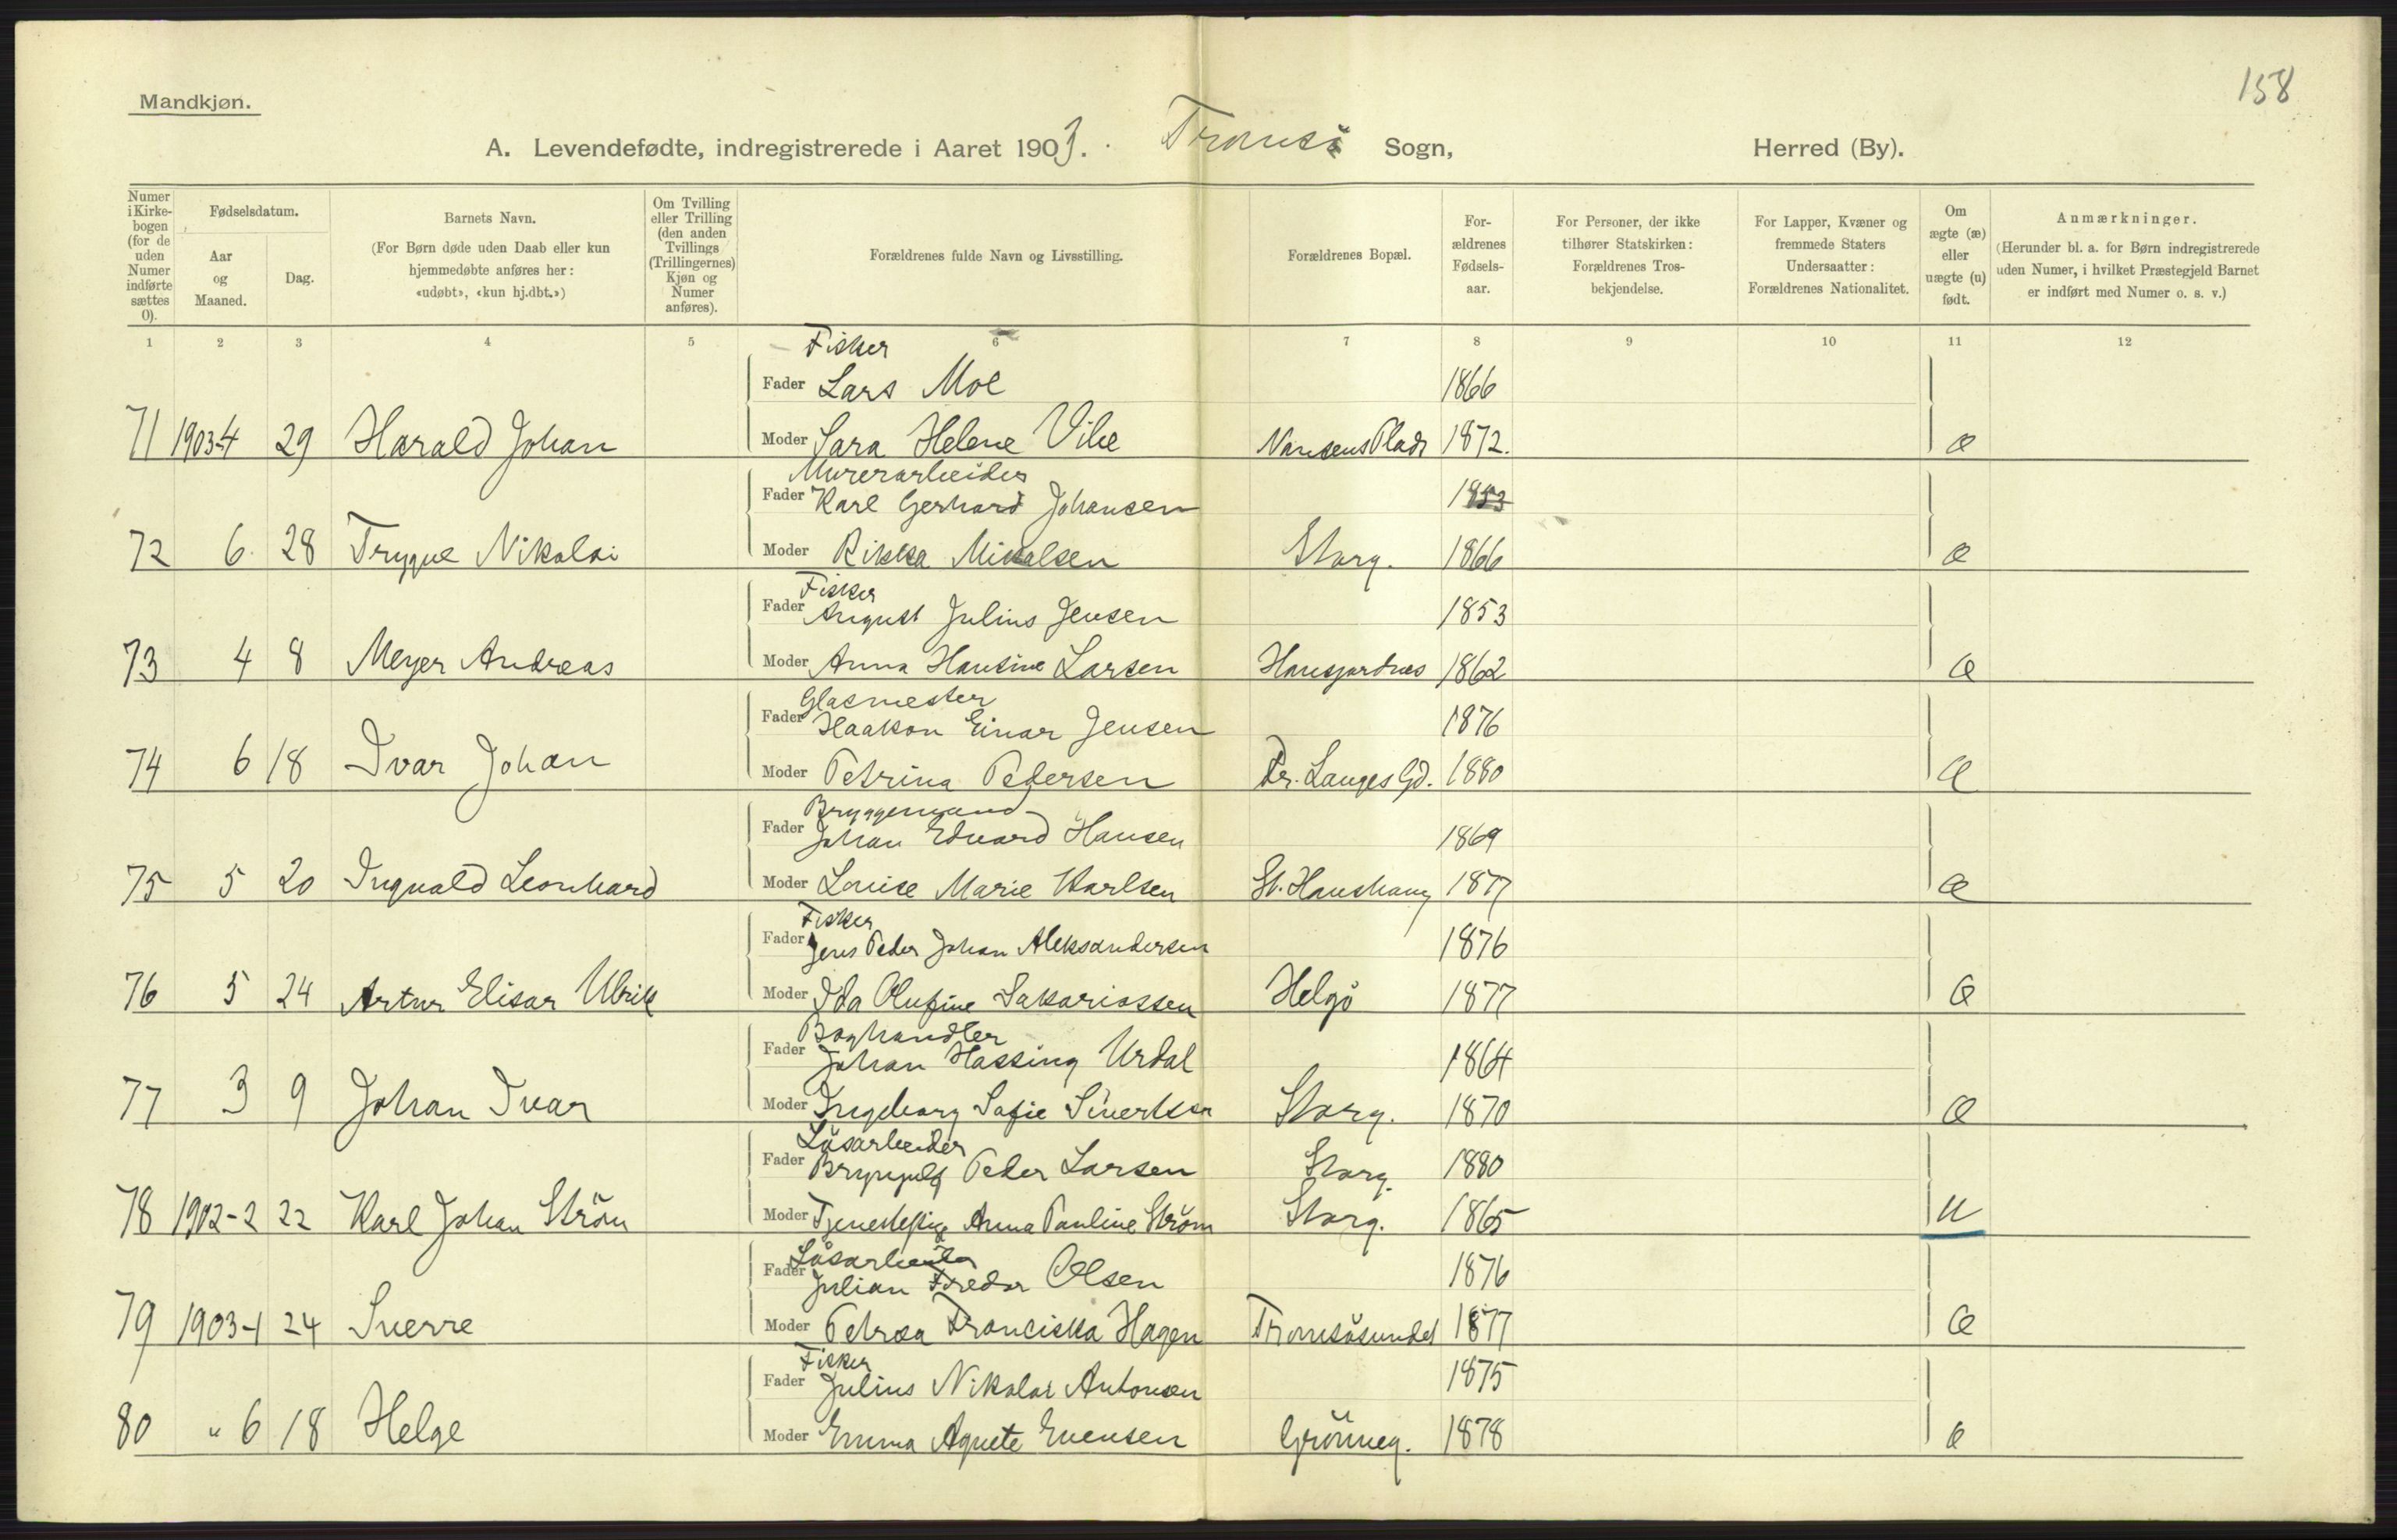 158
Mandkjøn.
A. Levendefødte, indregistrerede i Aaret 1903. Tromsö Sogn, Herred (By).
Numer i Kirkebogen (for de uden Numer indførte sættes 0).
Fødselsdatum.
Aar og Maaned.
Dag.
Barnets Navn.
(For Børn døde uden Daab eller kun hjemmedøbte anføres her: «udøbt», «kun hj.dbt.»)
Om Tvilling eller Trilling (den anden Tvillings (Trillingernes) Kjøn og Numer anføres).
Forældrenes fulde Navn og Livsstilling.
Forældrenes Bopæl.
Forældrenes Fødselsaar.
For Personer, der ikke tilhører Statskirken: Forældrenes Trosbekjendelse.
For Lapper, Kvæner og fremmede Staters Undersaatter: Forældrenes Nationalitet.
Om ægte (æ) eller uægte (u) født.
Anmærkninger.
(Herunder bl. a. for Børn indregistrerede uden Numer, i hvilket Præstegjeld Barnet er indført med Numer o. s. v.)
1 2 3 4 5 6 7 8 9 10 11 12
Fisker
Fader Lars Moe 1866
71 1903-4 29 Harald Johan Moder Sara Helene Vike Nansens Plads 1872. æ
Murerarbeider
Fader Karl Gerhard Johansen 1853
72 6 28 Trygve Nikolai Moder Rikka Mikalsen Storg. 1866 æ
Fisker
Fader August Julius Jensen 1853
73 4 8 Meyer Andreas Moder Anna Hansine Larsen Hansjordnes 1862 æ
Glasmester
Fader Haakon Einar Jensen 1876
74 6 18 Ivar Johan Moder Petrina Pedersen Dr. Langes Gd. 1880 æ
Bryggemand
Fader Johan Edvard Hansen 1869
75 5 20 Ingvald Leonhard Moder Louise Marie Karlsen St. Hanshaug 1877 æ
Fisker
Fader Jens Peder Johan Aleksandersen 1876
76 5 24 Artur Elisar Ulrik Moder Ida Olufine Sakariassen Helgö 1877 æ
Boghandler
Fader Johan Hassing Urdal 1864
77 3 9 Johan Ivar Moder Ingeborg Sofie Sivertsen Storg. 1870 æ
Lösarbeider
Fader Brynjulf Peder Larsen Storg. 1880
78 1902-2 22 Karl Johan Ström Moder Tjenestepige Anna Pauline Ström Storg. 1865 u
Lösarbeider
Fader Julian Fredor Olsen 1876
79 1903-1 24 Sverre Moder Petrea Franciska Hagen Tromsösundet 1877 æ
Fisker
Fader Julius Nikolai Antonsen 1875
80 " 6 18 Helge Moder Emma Agnete Evensen Grönneg. 1878 æ